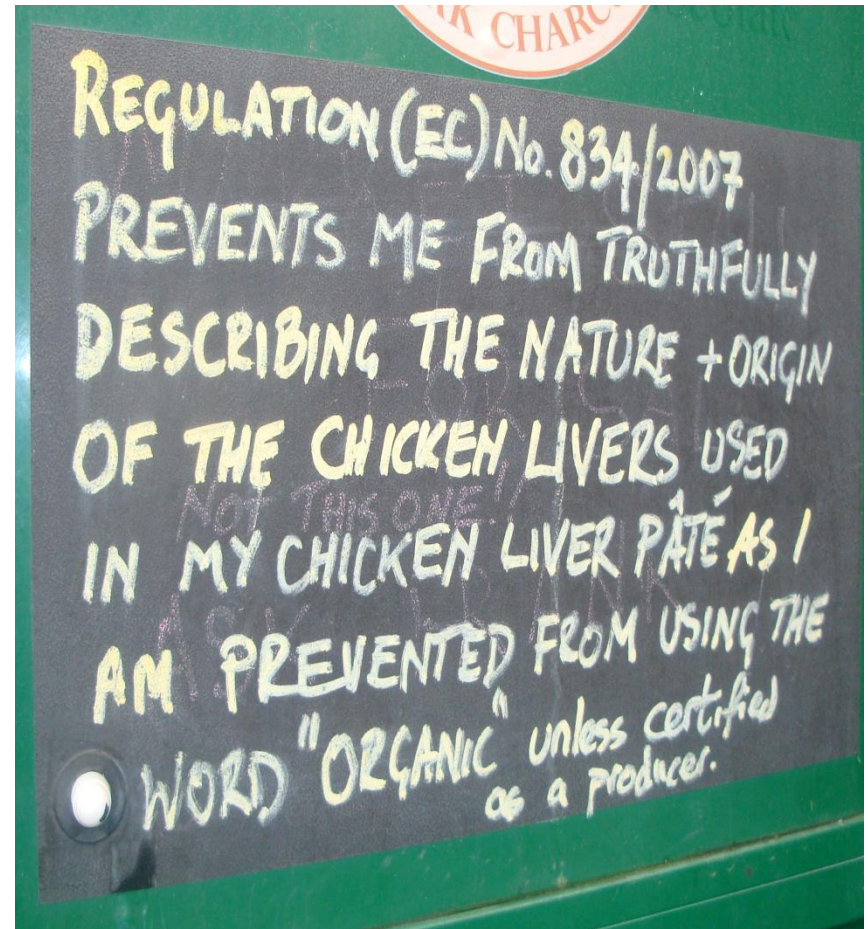 CHARC
REGULATION (EC) No. 834/2007
PREVENTS ME FROM TRUTHFULLY
DESCRIBING THE NATURE + ORIGIN
OF THE CHICKEN LIVERS USED
NOT THIS ONE!!
IN MY CHICKEN LIVER PÂTÉ AS I
AM PREVENTED FROM USING THE
WORD "ORGANIC" unless certified
as a producer.